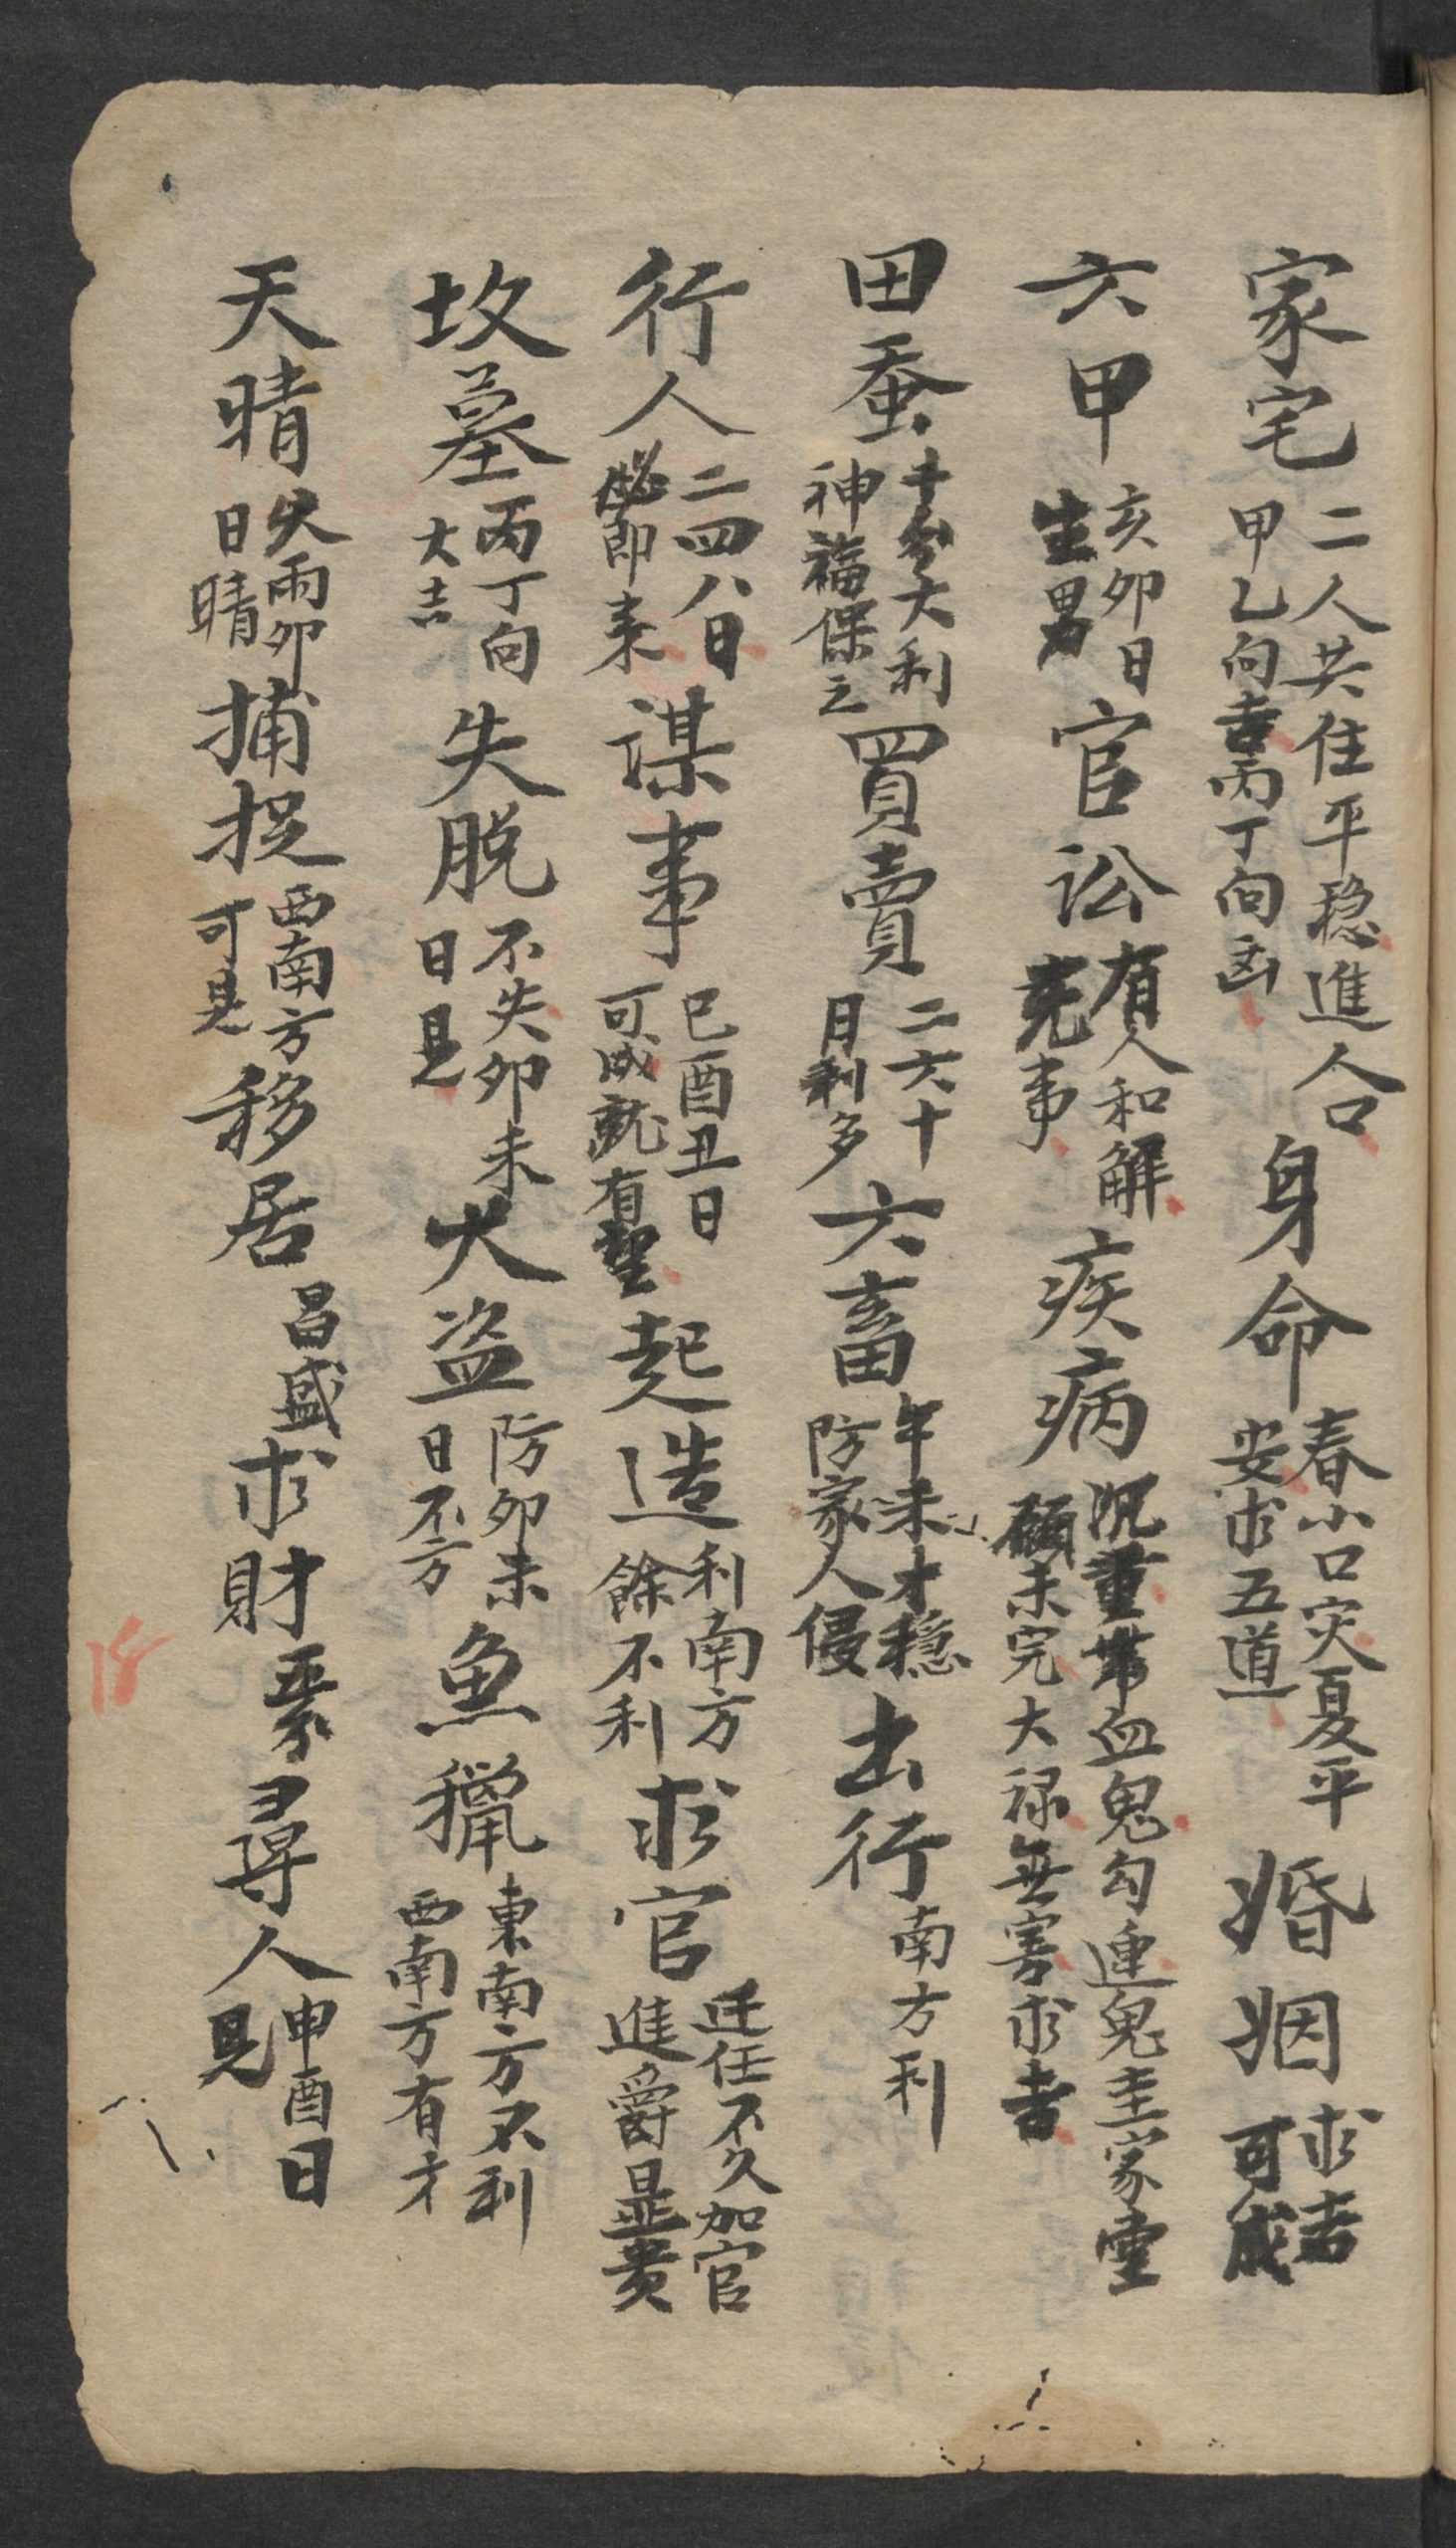 家宅二人共住平稳進人口甲乙向吉丙丁向凶身命春小口灾夏平安求五道婚姻求吉可成
六甲亥卯日生男官讼有人和解完事疾病沉重带血鬼勾連鬼圭家堂願未完大禄無害求吉
田蚕十分大利神福保之買賣二六十日利多六畜午未才穏防家人侵出行南方利
行人二四八日必即来谋事巳酉丑日可成就有望起造利南方餘不利求官迁任不久加官進爵显贵
坟墓丙丁向大吉失脱不失卯未日見大盗防卯未日不方魚獵東南方不利西南方有才
天晴失雨卯日晴捕捉西南方可見移居昌盛求財尋人申酉日見